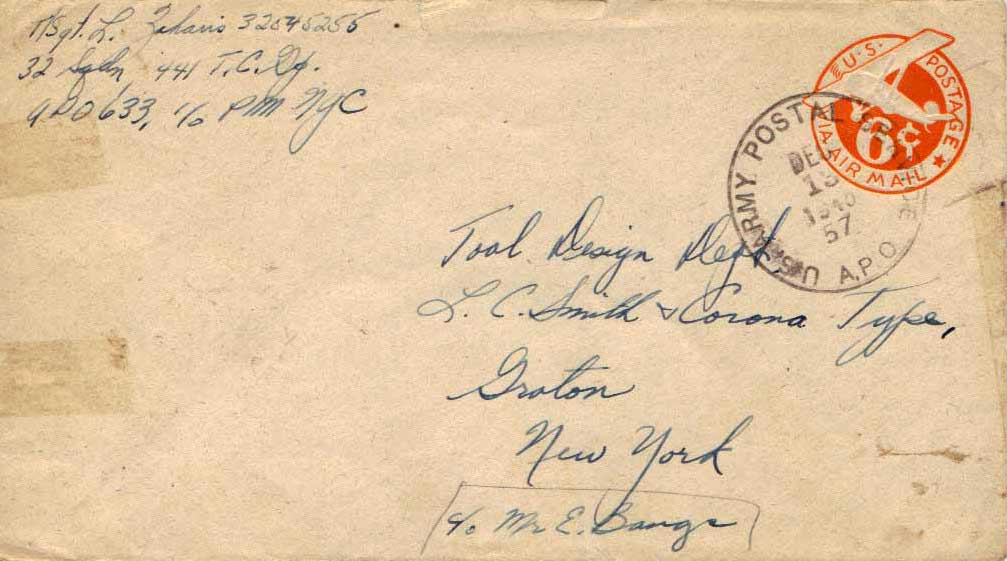 T/Sgt. L. Zaharis 32545255
32 Sqdn, 441 T.C. Gp.
APO 633, c/o PM NYC
U.S. POSTAGE
6¢
VIA AIR MAIL
U.S. ARMY POSTAL
A.P.O.
DEC
13
57
Tool Design Dept.
L. C. Smith & Corona Type,
Groton
New York
c/o Mr E. Bangs